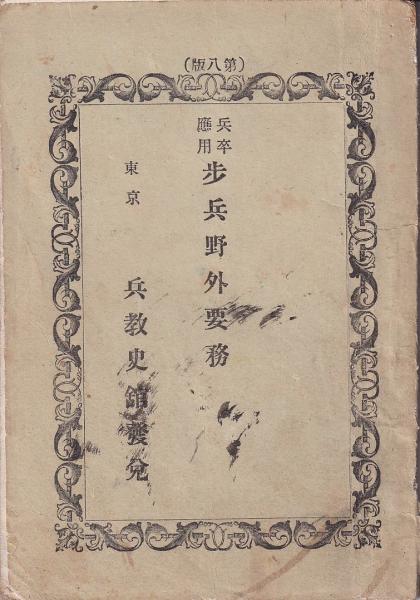 (第八版)
兵卒
應用
步兵野外要務
東京
兵教史館發兌